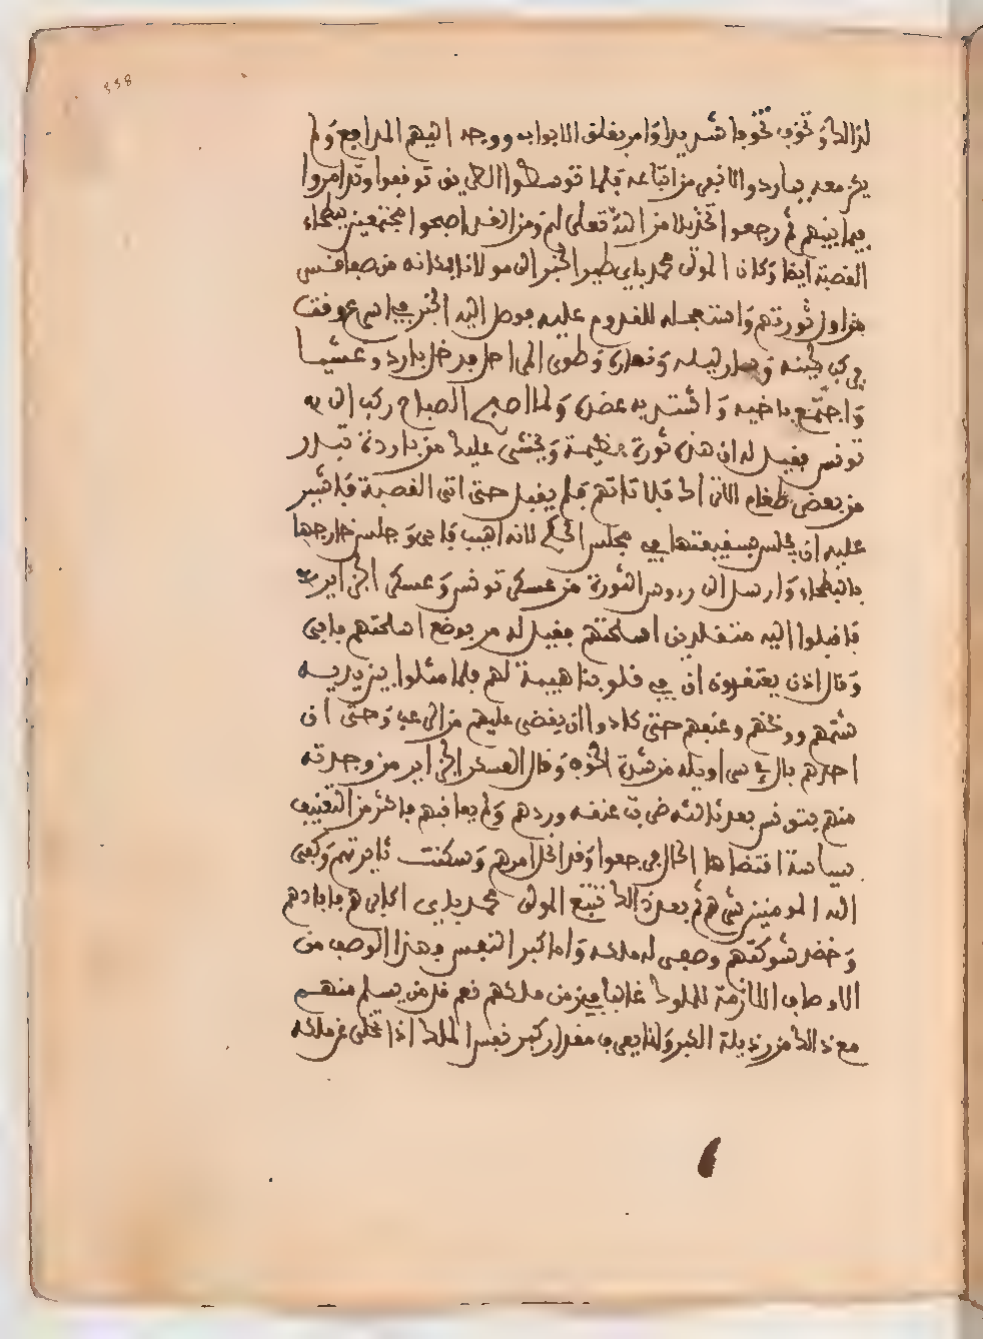 338
لذالك وتخوف تخوفا شديدا وامر بغلق الابواب ووجه اليهم المدافع ولم
يكن معه بباردو الا نفر من اتباعه فلما توسطوا الطريق توقفوا وتدامروا
فيما بينهم ثم رجعوا تخذيلا من الله تعلى لهم ومن الغد اصبحوا مجتمعين ببطحاء
القصبة ايضا وكان المولى محمد باي طير الخبر الى مولانا ابقاه من صفاقس
من اول ثورتهم واستعجله للقدوم عليه فوصل اليه الخبر في اسرع وقت
فركب لحينه وسار ليله ونهاره وطوى المراحل فدخل باردو عشيا
واجتمع باخيه واشتد به عضده ولما اصبح الصباح ركب الى
تونس فقيل له ان هذه ثورة عظيمة ويخشى عليك من بادرة تبدر
من بعض طغام الاتراك فلا تاتهم فلم يقبل حتى اتى القصبة فاشير
عليه ان يجلس بسقيفتها في مجلس الحكم لانه اهيب فابى وجلس خارجها
بالبطحاء وارسل الى رءوس الثورة من عسكر تونس وعسكر الجزاير
فاقبلوا اليه متقلدين اسلحتهم فقيل له مر بوضع اسلحتهم فابى
وقال اذن يعتقدون ان في قلوبنا هيبة لهم فلما مثلوا بين يديه
شتمهم ووبخهم وعنفهم حتى كادوا ان يقضى عليهم من الرعب وحتى ان
احدهم بال في سراويله من شدة الخوف وقال لعسكر الجزاير من وجدته
منهم بتونس بعد ثلاثة ضربت عنقه وردهم ولم يعاقبهم باكثر من التعنيف
سياسة اقتضاها الحال فرجعوا وقد انحل امرهم وسكنت ثايرتهم وكفى
الله المومنين شرهم ثم بعد ذالك تتبع المولى محمد باي اكابرهم فابادهم
وخضد شوكتهم وصفى له ملكه واما كبر النفس فهذا الوصف من
الاوصاف اللازمة للملوك غالبا حين ملكهم نعم قل من يسلم منهم
مع ذالك من رذيلة الكبر وانما يعرف مقدار كبر نفس الملك اذا تخلى عن ملكه